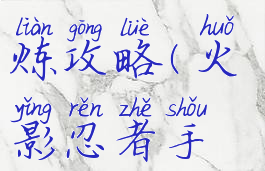 liàn gōng lüè huǒ
炼攻略(火
yǐng rěn zhě shǒu
影忍者手